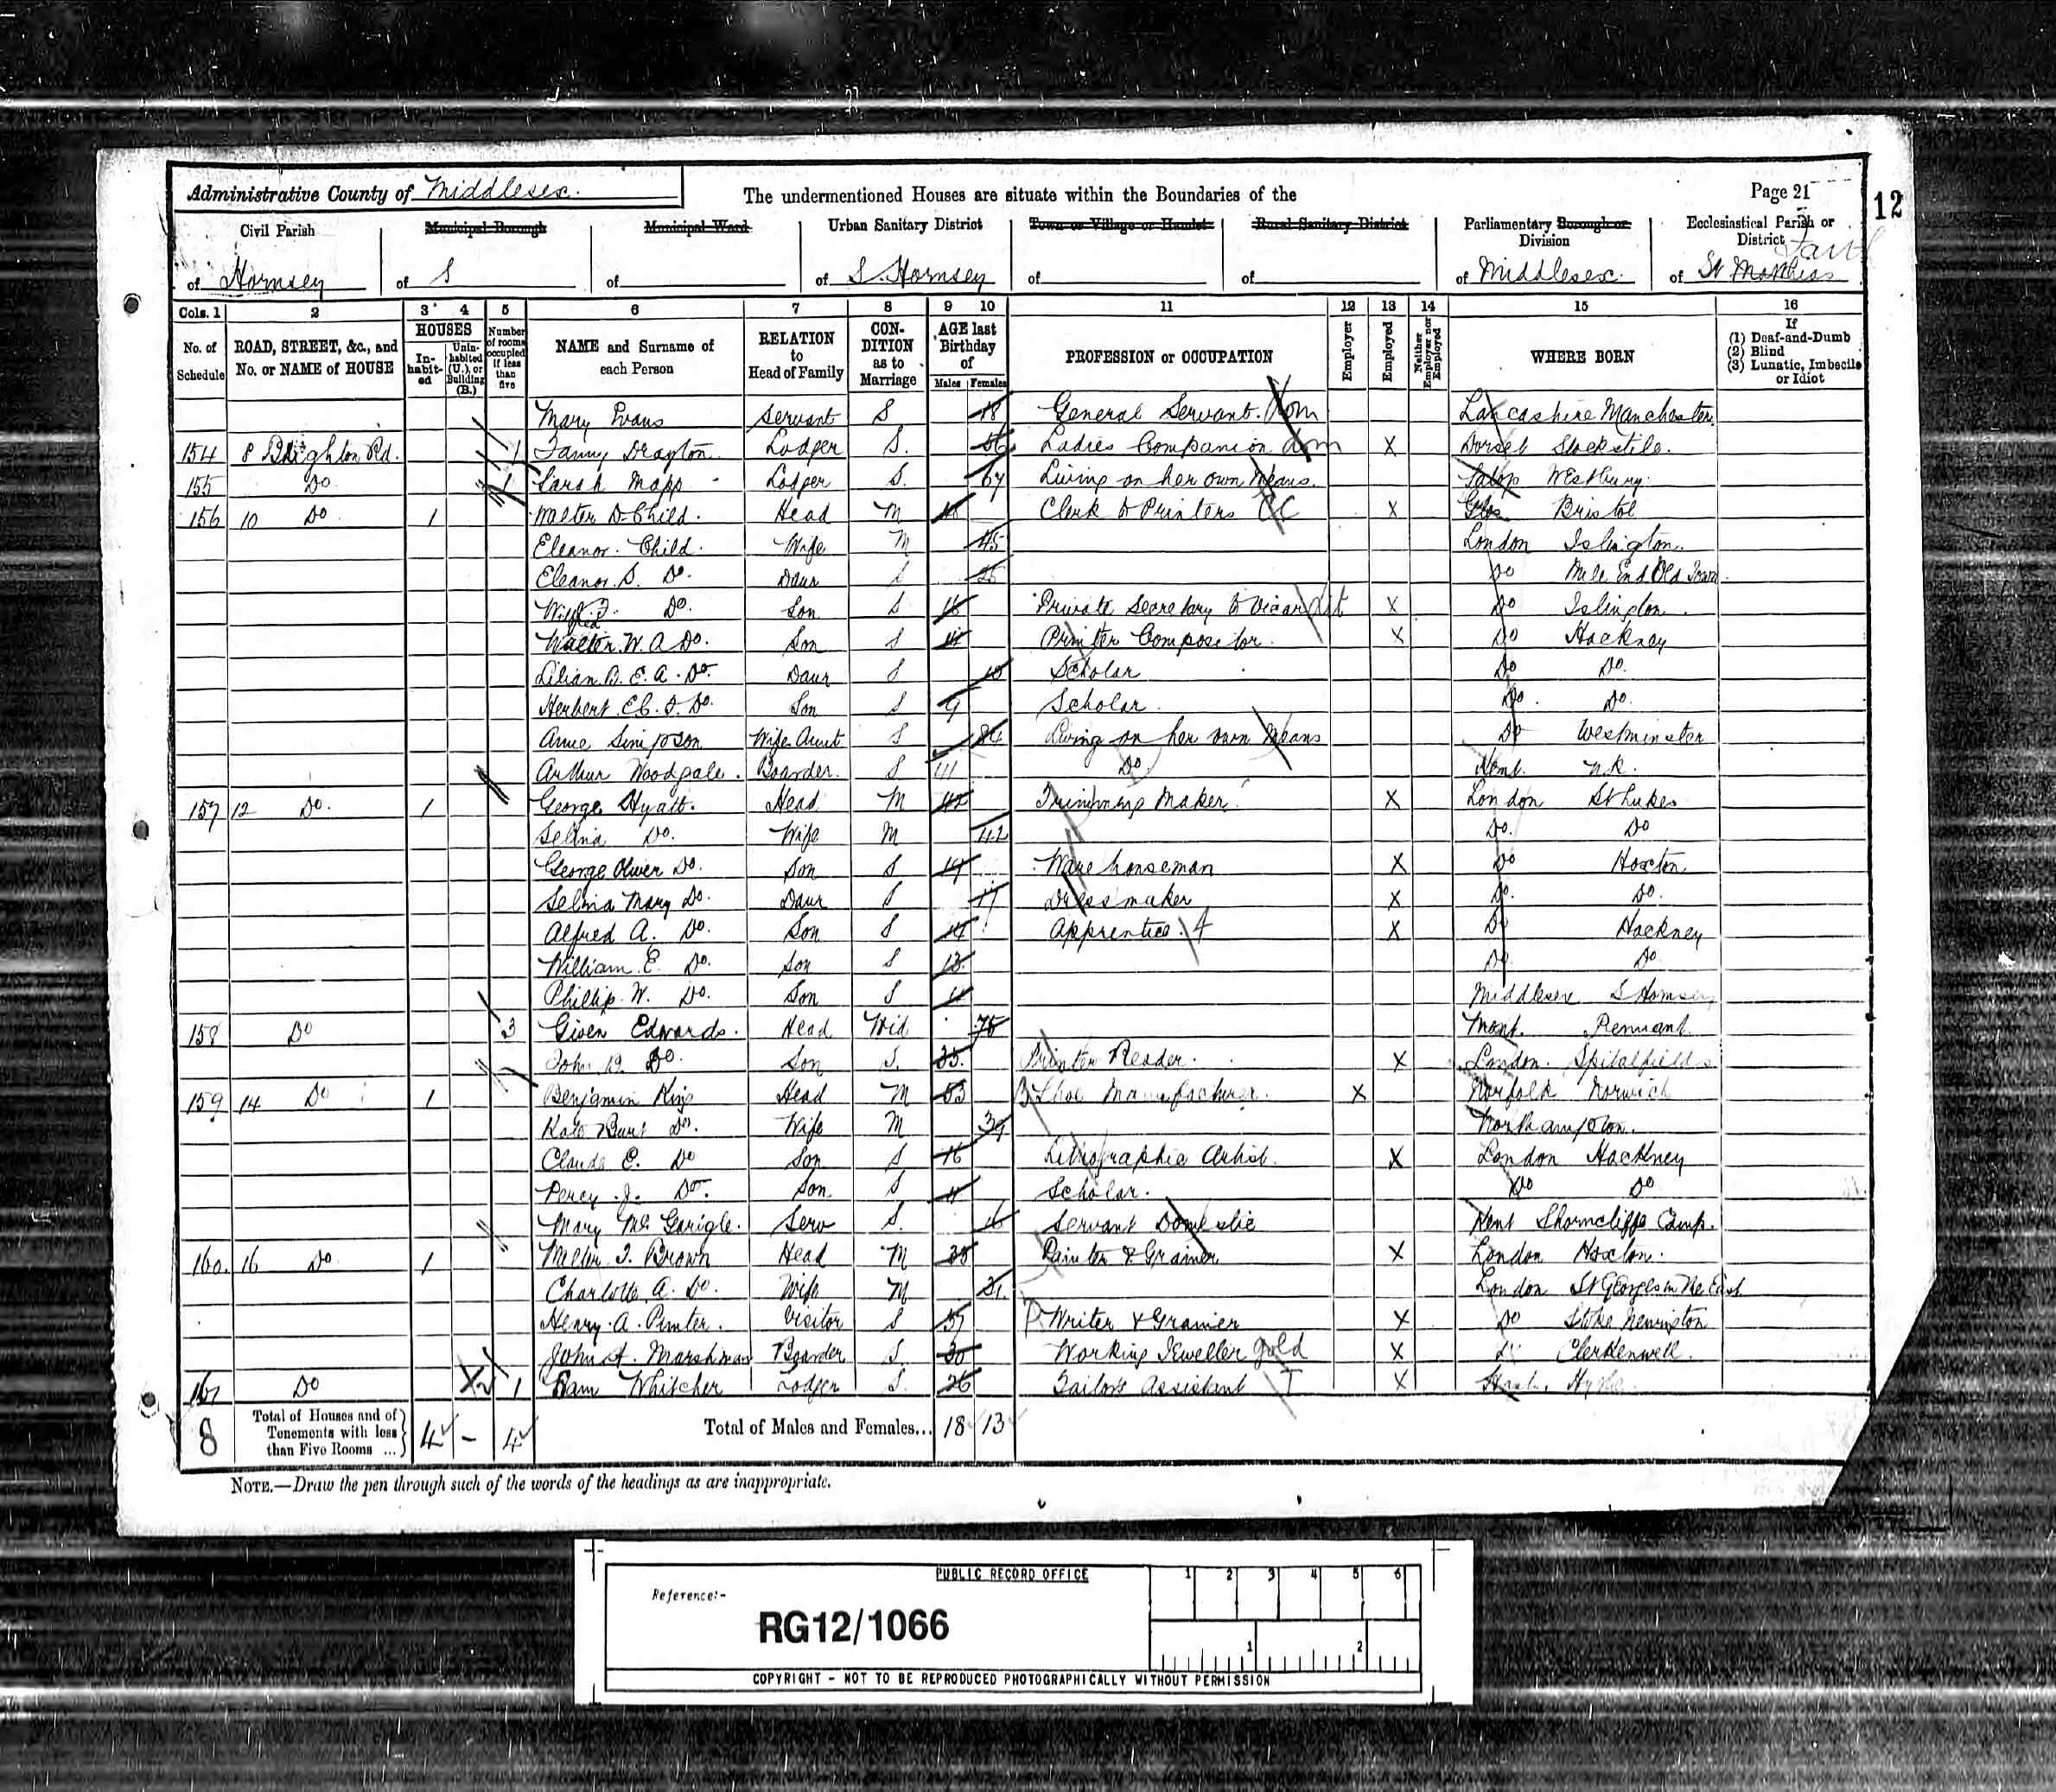 Administrative County of Middlesex.
The undermentioned Houses are situate within the Boundaries of the
Page 21
12
Civil Parish
Municipal Borough
Municipal Ward
Urban Sanitary District
Town or Village or Hamlet
Rural Sanitary District
Parliamentary Borough or Division
Ecclesiastical Parish or District
of Hornsey
of S
of
of S. Hornsey
of
of
of Middlesex.
of St Matthias
Cols. 1 2 3 4 5 6 7 8 9 10 11 12 13 14 15 16
No. of Schedule
ROAD, STREET, &c., and No. or NAME of HOUSE
HOUSES
In-habit-ed
Unin-habited (U.), or Building (B.)
Number of rooms occupied if less than five
NAME and Surname of each Person
RELATION to Head of Family
CON-DITION as to Marriage
AGE last Birthday of
Males Females
PROFESSION or OCCUPATION
Employer
Employed
Neither Employer nor Employed
WHERE BORN
If
(1) Deaf-and-Dumb
(2) Blind
(3) Lunatic, Imbecile or Idiot
Mary Evans Servant S 18 General Servant. Dom Lancashire Manchester
154 8 Brighton Rd. 1 Fanny Drayton Lodger S. 56 Ladies Companion Dom X Dorset
155 Do. 1 Sarah Mapp - Lodger S. 67 Living on her own Means. Salop Westbury.
156 10 Do. 1 Walter D. Child. Head M Clerk to Printers CC X Glos Bristol
Eleanor. Child. Wife M 45 London Islington.
Eleanor. S. Do. Daur S Do Mile End Old Town
Wilfred. Do. Son S 16 Private Secretary to Vicar X Do Islington.
Walter. W. A Do. Son S 14 Printer Compositor. X Do Hackney
Lilian B. E. A. Do. Daur S 10 Scholar Do Do.
Herbert Do. Son S 9 Scholar. Do. Do.
Anne Simpson Wifes Aunt S 84 Living on her own Means Do Westminster
Arthur Woodgate. Boarder. S Do N.K.
157 12 Do. 1 George Hyatt. Head M 42 Trimmings Maker X London St Lukes
Selina Do. Wife M 42 Do. Do
George Oliver Do. Son S 19 Warehouseman X Do Hoxton
Selina Mary Do. Daur S 17 Dressmaker X Do. Do.
Alfred A. Do. Son S 14 Apprentice. X Do Hackney
William E. Do. Son S 13 Do Do
Phillip. W. Do. Son S 4 Middlesex S Hornsey
158 Do 3 Edwards. Head Wid 75 Mont. Pennant
John Do. Son S. 35. Printer Reader. X London. Spitalfields
159 14 Do 1 Benjamin King Head M 53 Shoe Manufacturer. X Norfolk Norwich
Kate Burt Do. Wife M 39 Northampton.
Claude E. Do Son S 16 Lithographic Artist. X London Hackney
Percy J. Do. Son S Scholar. Do Do
Mary Mc Garigle. Serv S. 16 Servant Domestic Kent Shorncliffe Camp.
160. 16 Do 1 Brown Head M 38 Painter & Grainer X London Hoxton.
Charlotte A. Do. Wife M 31. London St Georges in the East
Henry. A. Pinter. Visitor S 37 Writer & Grainer X Do Stoke Newington
John A. Marshman Boarder S. 30 Working Jeweller gold X Clerkenwell.
161 Do 1 Whitcher Lodger S. 26 Tailors Assistant T X Hants, Hythe
8
Total of Houses and of Tenements with less than Five Rooms ...
4 - 4
Total of Males and Females...
18 13
NOTE.—Draw the pen through such of the words of the headings as are inappropriate.
PUBLIC RECORD OFFICE
Reference:-
RG12/1066
1 2 3 4 5 6
1 2
COPYRIGHT - NOT TO BE REPRODUCED PHOTOGRAPHICALLY WITHOUT PERMISSION